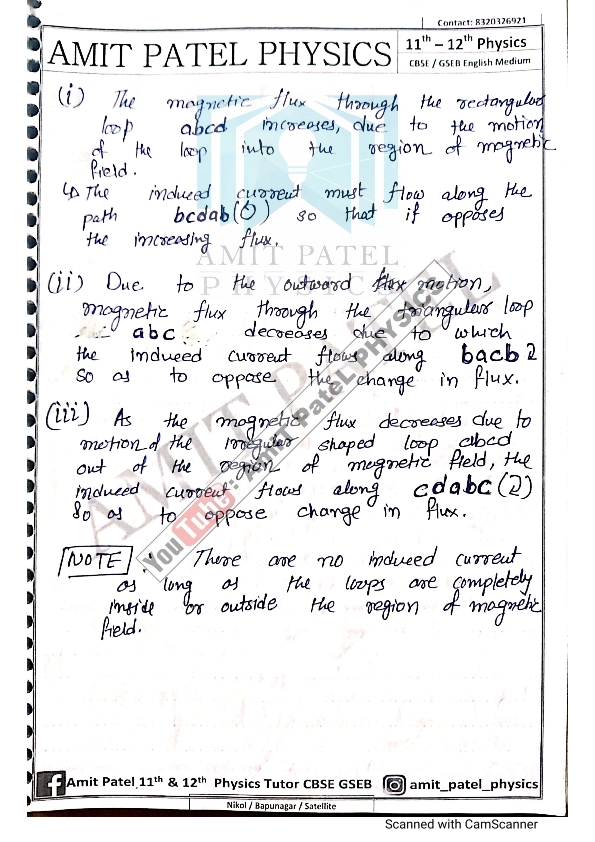 Contact: 8320326921
AMIT PATEL PHYSICS
11th – 12th Physics
CBSE / GSEB English Medium
(i) The magnetic flux through the rectangular
loop abcd increases, due to the motion
of the loop into the region of magnetic
field.
↳ The induced current must flow along the
path bcdab (↺) so that if opposes
the increasing flux.
AMIT PATEL
PHYSICS
(ii) Due to the outward motion,
magnetic flux through the triangular loop
abc decreases due to which
the induced current flows along bacb
so as to oppose the change in flux.
(iii) As the magnetic flux decreases due to
motion of the irregular shaped loop abcd
out of the region of magnetic field, the
induced current flows along cdabc
so as to oppose change in flux.
NOTE : There are no induced current
as long as the loops are completely
inside or outside the region of magnetic
field.
AMIT PATEL
YouTube :- AmiT PateL PhYSICS
Amit Patel 11th & 12th Physics Tutor CBSE GSEB
amit_patel_physics
Nikol / Bapunagar / Satellite
Scanned with CamScanner